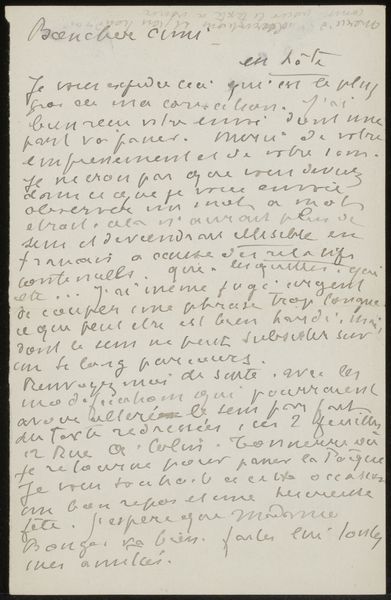 Bon cher ami
en hâte
Je vous expédie ceci qui est le plus
gros de ma correction. J'ai
bien reçu votre envoi dont une
part va paner. Merci de votre
empressement et de votre soin.
Je ne crois pas que vous deviez
dans ce que je vous envoie
observer un mot à mot
étroit, cela n'aurait plus de
sens et deviendrait illisible en
français à cause des relatifs
continuels. que, lesquelles, qui
etc... J'ai même jugé urgent
de couper une phrase trop longue
ce qui peut être est bien hardi, mais
dont le sens ne peut subsister sur
un si long parcours.
Renvoyez moi de suite, avec les
modifications qui pourraient
avoir altéré le sens
du texte redressées, ces 2 feuilles
12 Rue
je retourne pour paner la Pâque
Je vous souhaite à cette occasion
un bon repos et une heureuse
fête. J'espère que Madame
Bonger va bien. faites lui toutes
mes amitiés.